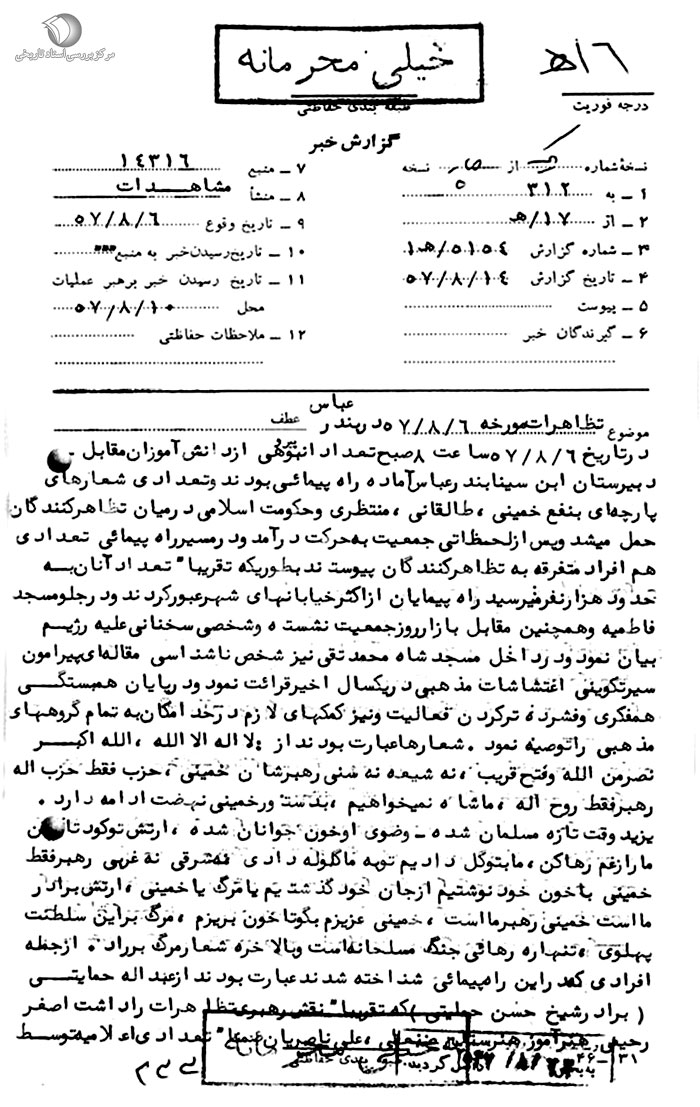 مرکز بررسی اسناد تاریخی
خیلی محرمانه
طبقه بندی حفاظتی
درجه فوریت
گزارش خبر
نسخهٔ شماره از نسخه
۱ ـ به ۳۱۲
۲ ـ از ۱۷/هـ
۳ ـ شماره گزارش ۵۱۵۴/هـ۱
۴ ـ تاریخ گزارش ۵۷/۸/۱۴
۵ ـ پیوست
۶ ـ گیرندگان خبر
۷ ـ منبع ۱۴۳۱۶
۸ ـ منشأ مشاهدات
۹ ـ تاریخ وقوع ۵۷/۸/۶
۱۰ ـ تاریخ رسیدن خبر به منبع
۱۱ ـ تاریخ رسیدن خبر برهبر عملیات
محل ۵۷/۸/۱۰
۱۲ ـ ملاحظات حفاظتی
عباس
موضوع تظاهرات مورخه ۵۷/۸/۶ در بندر عطف
در تاریخ ۵۷/۸/۶ ساعت ۸ صبح تعداد انبوهی از دانش آموزان مقابل
دبیرستان ابن سینا بندرعباس آماده راه پیمائی بودند و تعدادی شعارهای
پارچه‌ای بنفع خمینی ، طالقانی ، منتظری وحکومت اسلامی در میان تظاهرکنندگان
حمل میشد وپس ازلحظاتی جمعیت به حرکت درآمد ودر مسیر راه پیمائی تعدادی
هم افراد متفرقه به تظاهرکنندگان پیوستند بطوریکه تقریبا" تعداد آنان به
حدود هزار نفر میرسید راه پیمایان از اکثر خیابانهای شهر عبور کردند ودر جلو مسجد
فاطمیه وهمچنین مقابل بازار روز جمعیت نشسته و شخصی سخنانی علیه رژیم
بیان نمود ودر داخل مسجد شاه محمد تقی نیز شخص ناشناسی مقاله‌ای پیرامون
سیر تکوینی اغتشاشات مذهبی در یکسال اخیر قرائت نمود ودر پایان همبستگی
همفکری وفشرده ترکردن فعالیت ونیز کمکهای لازم درحد امکان به تمام گروههای
مذهبی را توصیه نمود . شعارها عبارت بودند از :لا اله الا الله ، الله اکبر
نصرمن الله وفتح قریب ، نه شیعه نه سنی رهبرشان خمینی ، حزب فقط حزب اله
رهبر فقط روح اله ، ما شاه نمیخواهیم ، بدستور خمینی نهضت ادامه دارد .
یزید وقت تازه مسلمان شده ـ وضوی او خون جوانان شده ، ارتش تو کودتا کن
ما را ز غم رها کن ، ما بتو گل دادیم تو به ما گلوله دادی نه شرقی نه غربی رهبر فقط
خمینی با خون خود نوشتیم از جان خود گذشتیم یا مرگ یا خمینی ، ارتش برادر
ما است خمینی رهبر ما است ، خمینی عزیزم بگو تا خون بریزم ، مرگ بر این سلطنت
پهلوی ، تنها ره رهائی جنگ مسلحانه است وبالاخره شعار مرگ بر راد . ازجمله
افرادی که در این راه پیمائی شناخته شدند عبارت بودند از عبداله حمایتی
( برادر شیخ حسن حمایتی ) که تقریبا" نقش رهبری تظاهرات را داشت اصغر
رحیمی هنرآموز هنرستان صنعتی ، علی ناصریان ضمنا" تعدادی اعلامیه توسط